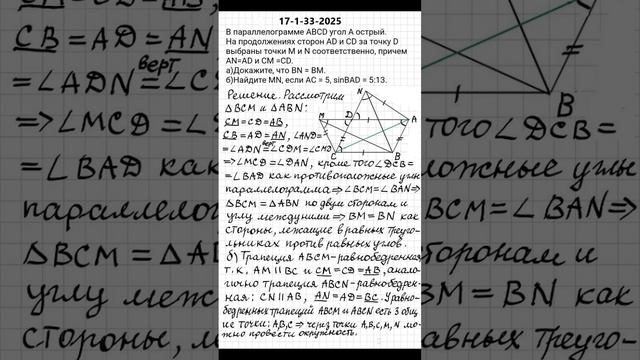 17-1-33-2025
В параллелограмме ABCD угол А острый.
На продолжениях сторон AD и CD за точку D
выбраны точки M и N соответственно, причем
AN=AD и CM =CD.
а)Докажите, что BN = BM.
б)Найдите MN, если AC = 5, sinBAD = 5:13.
Решение. Рассмотрим
△BCM и △ABN:
CM = CD = AB,
CB = AD = AN, ∠AND=
= ∠ADN верт = ∠CDM = ∠CMD
⇒ ∠MCD = ∠DAN, кроме того ∠DCB =
= ∠BAD как противоположные углы
параллелограмма ⇒ ∠BCM = ∠BAN ⇒
△BCM = △ABN по двум сторонам и
углу между ними ⇒ BM = BN как
стороны, лежащие в равных треуго-
льниках против равных углов.
б) Трапеция ABCM - равнобедренная
т.к. AM || BC и CM = CD = AB, анало-
гично трапеция ABCN - равнобедрен-
ная: CN || AB, AN = AD = BC. У равно-
бедренных трапеций ABCM и ABCN есть 3 общ
ие точки: A, B, C ⇒ через точки A, B, C, M, N мо-
жно провести окружность.
N
M
D
A
C
B
CB = AD = AN
= ∠ADN верт = ∠C
⇒ ∠MCD =
= ∠BAD как
параллелог
△BCM = △A
углу меж
стороны,
B
того ∠DCB =
ложные углы
BCM = ∠BAN ⇒
торонам и
BM = BN как
авных треуго-